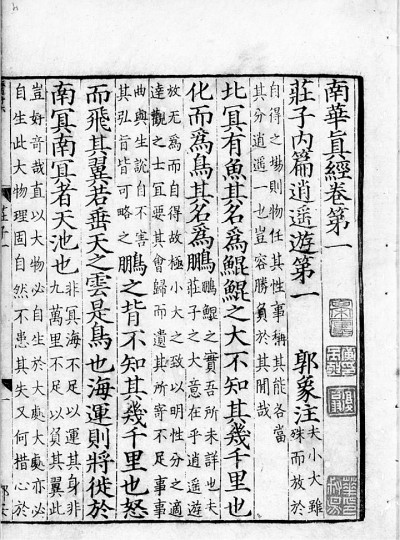 南華眞經卷第一
莊子內篇逍遥遊第一 郭象注 夫小大雖
殊而放於
自得之場則物任其性事稱其能各當
其分逍遥一也豈容勝負於其閒哉
北冥有魚其名爲鯤鯤之大不知其幾千里也
化而爲鳥其名爲鵬 鵬鯤之實吾所未詳也夫
莊子之大意在乎逍遥遊
放无爲而自得故極小大之致以明性分之適
達觀之士宜要其會歸而遺其所寄不足事事
曲與生說自不害
其弘旨皆可略之 鵬之背不知其幾千里也怒
而飛其翼若垂天之雲是鳥也海運則將徙於
南冥南冥者天池也 非冥海不足以運其身非
九萬里不足以負其翼此
豈好奇哉直以大物必自生於大處大處亦必
自生此大物理固自然不患其失又何措心於